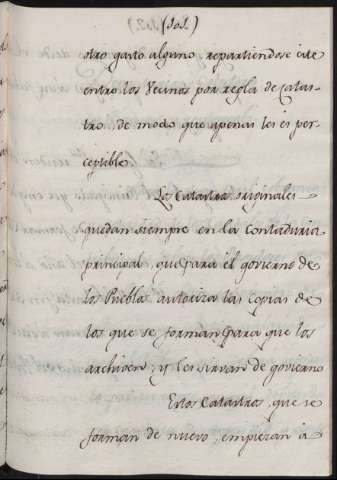 otro gasto alguno, repartiendose este
entro los Vecinos por regla de Catas-
tro, de modo que apenas les es per-
ceptible.
Los Catastros originales
quedan siempre en la Contaduria
principal, que para el govierno de
los Pueblos autoriza las copias de
los que se forman para que los
archiven, y les sirvan de govierno
Estos Catastros, que se
forman de nuevo, empiezan à